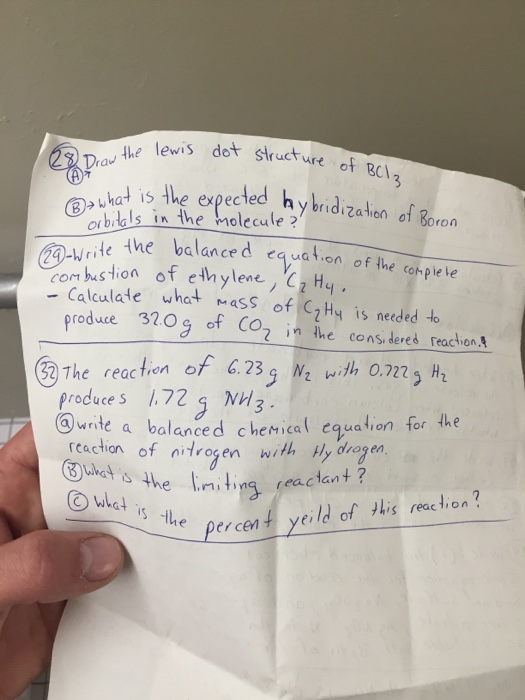 28 Draw the lewis dot structure of BCl3
A→
B→ what is the expected hybridization of Boron
orbitals in the molecule?
29-Write the balanced equation of the complete
combustion of ethylene, C2H4.
- Calculate what mass of C2H4 is needed to
produce 32.0g of CO2 in the considered reaction.
32 The reaction of 6.23g N2 with 0.722g H2
produces 1.72 g NH3.
a write a balanced chemical equation for the
reaction of nitrogen with Hydrogen.
B what is the limiting reactant?
C what is the percent yeild of this reaction?